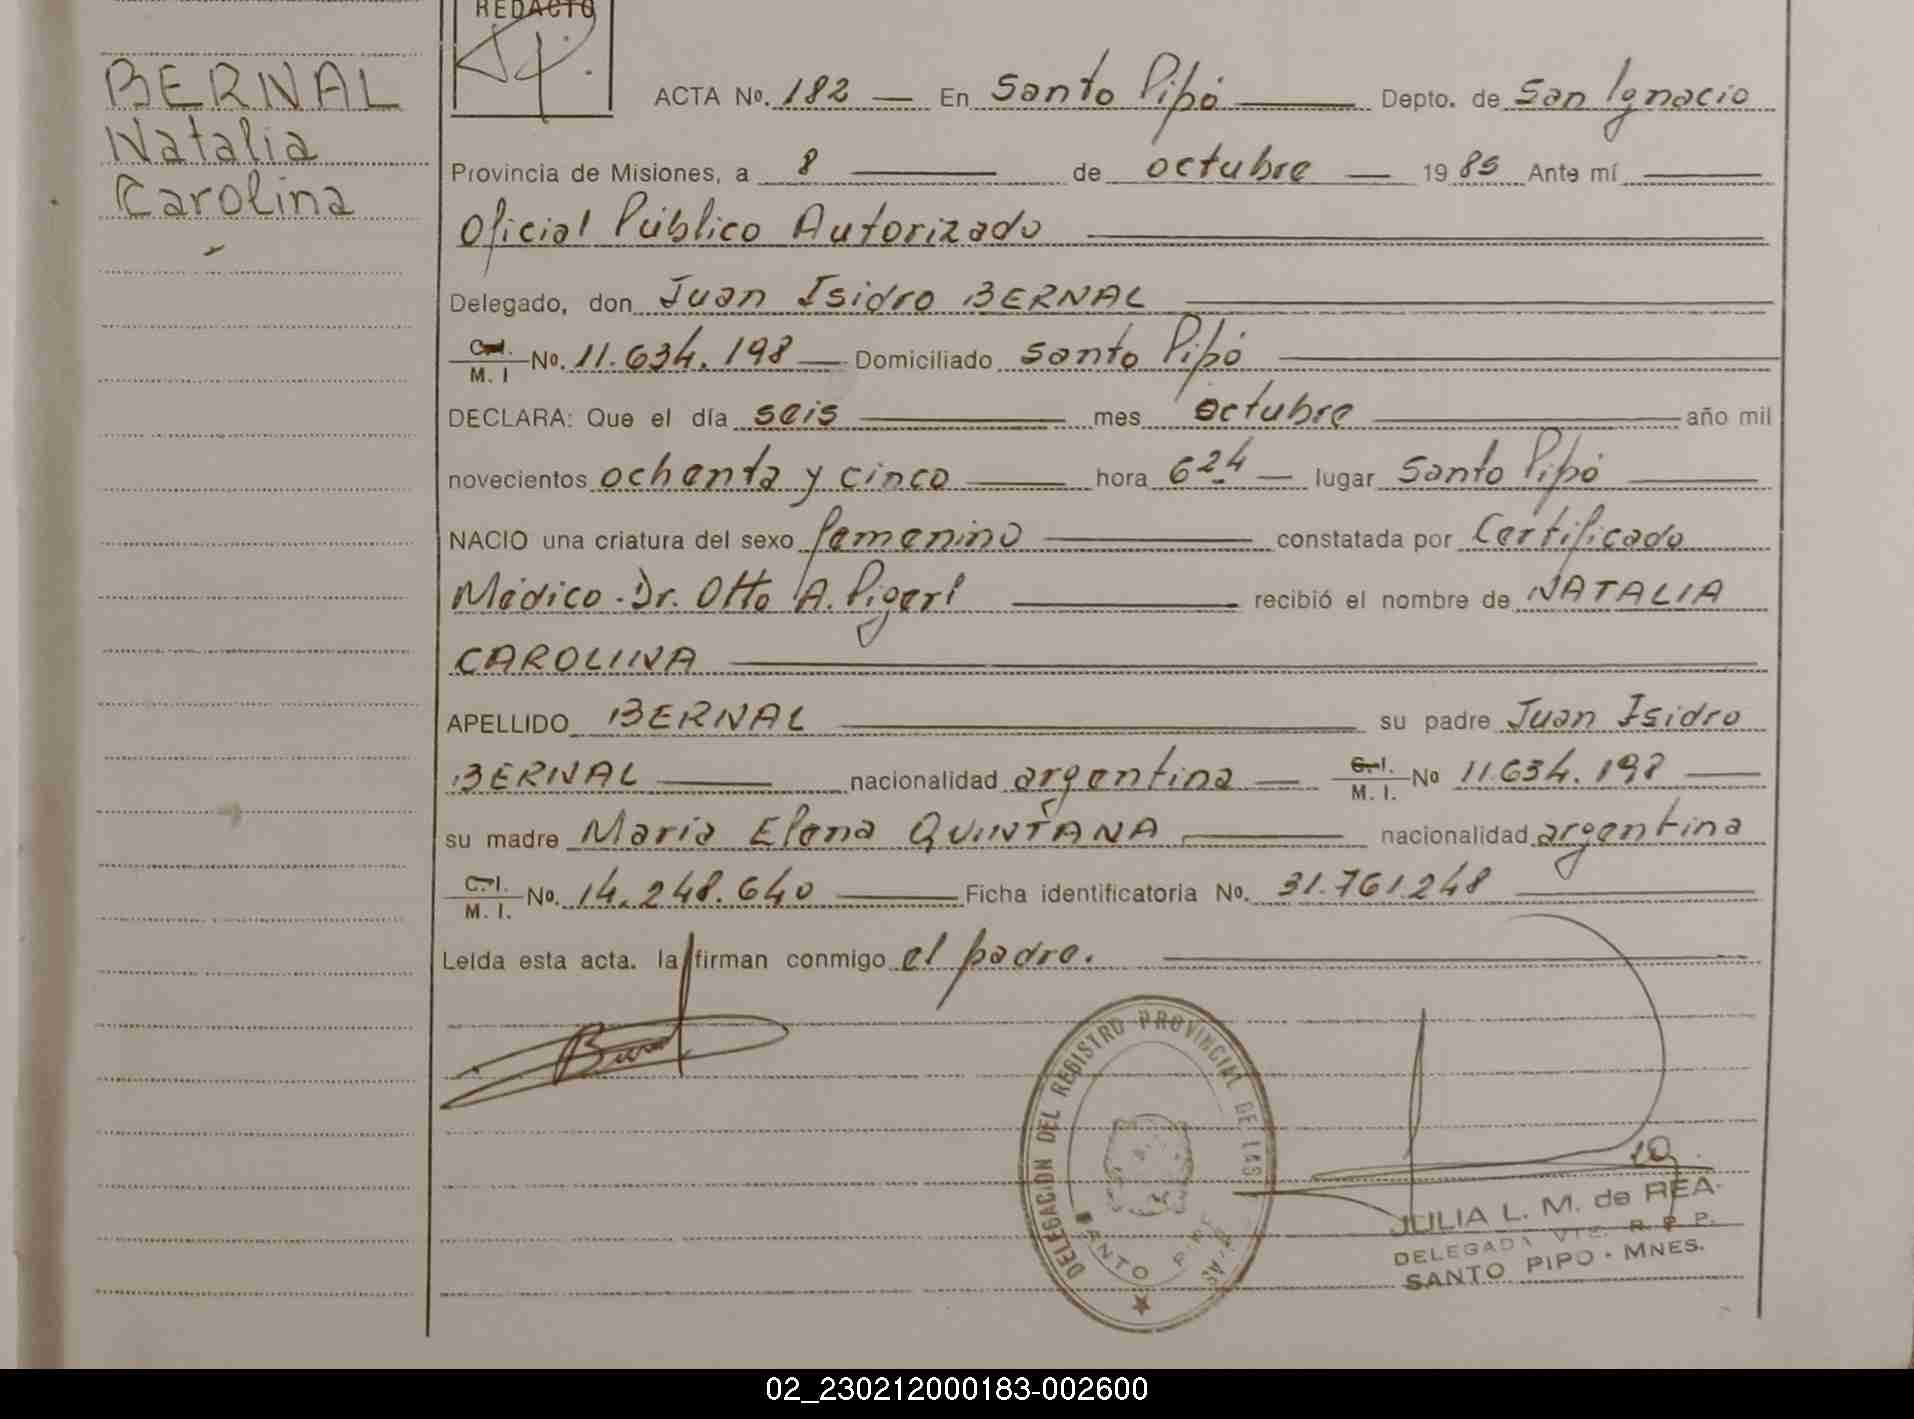 REDACTO
BERNAL
Natalia
Carolina
ACTA No. 182 — En Santo Pipó — Depto. de San Ignacio
Provincia de Misiones, a 8 — de octubre — 1985 Ante mí —
Oficial Público Autorizado —
Delegado, don Juan Isidro BERNAL —
C.I. M. I No. 11.634.198 — Domiciliado Santo Pipó —
DECLARA: Que el día seis — mes octubre — año mil
novecientos ochenta y cinco — hora 6 24 — lugar Santo Pipó —
NACIO una criatura del sexo femenino — constatada por Certificado
Médico. Dr. Otto A. — recibió el nombre de NATALIA
CAROLINA —
APELLIDO BERNAL — su padre Juan Isidro
BERNAL — nacionalidad argentina — C.I. M. I. No 11.634.198 —
su madre María Elena QUINTANA — nacionalidad argentina
C.I. M. I. No. 14.248.640 — Ficha identificatoria No. 31.761248 —
Leída esta acta. la firman conmigo el padre. —
DELEGACION DEL REGISTRO PROVINCIAL DE LAS
SANTO PIPO
JULIA L. M. de REA
DELEGADA R. P. P.
SANTO PIPO · MNES.
02_230212000183-002600